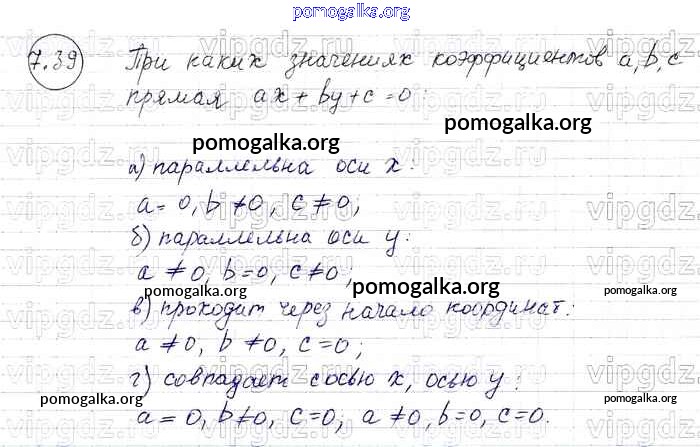 pomogalka.org
7.39 При каких значениях коэффициентов a, b, c
прямая ax + by + c = 0:
pomogalka.org
pomogalka.org
а) параллельна оси x:
a = 0, b ≠ 0, c ≠ 0;
б) параллельна оси y:
a ≠ 0, b = 0, c ≠ 0;
pomogalka.org
pomogalka.org
pomogalka.org
в) проходит через начало координат:
a ≠ 0, b ≠ 0, c = 0;
pomogalka.org
pomogalka.org
г) совпадает с осью x, осью y:
a = 0, b ≠ 0, c = 0; a ≠ 0, b = 0, c = 0.
pomogalka.org